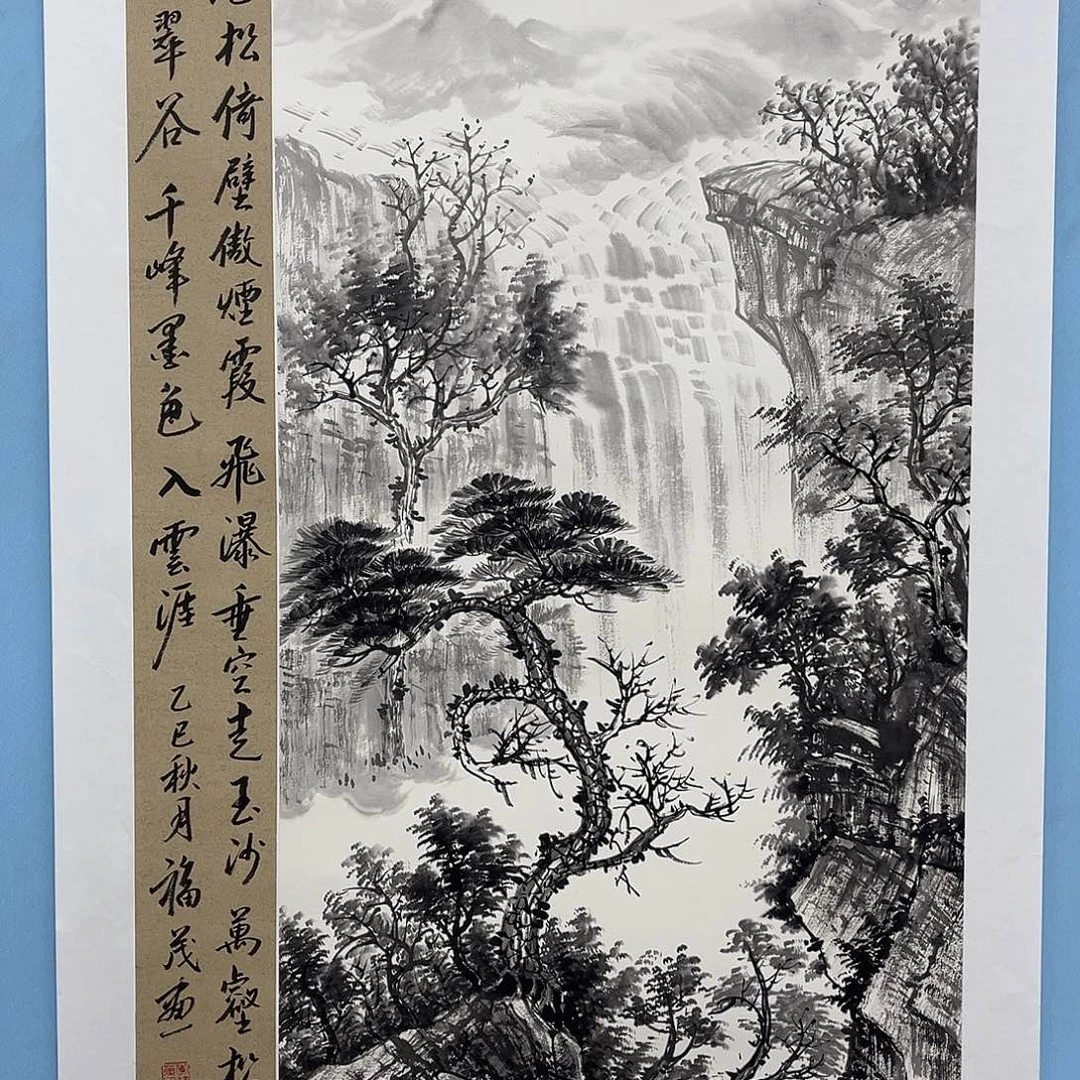 松倚壁傲煙霞飛瀑垂空走玉沙萬壑松
翠谷千峰墨色入雲涯乙巳秋月福茂畫